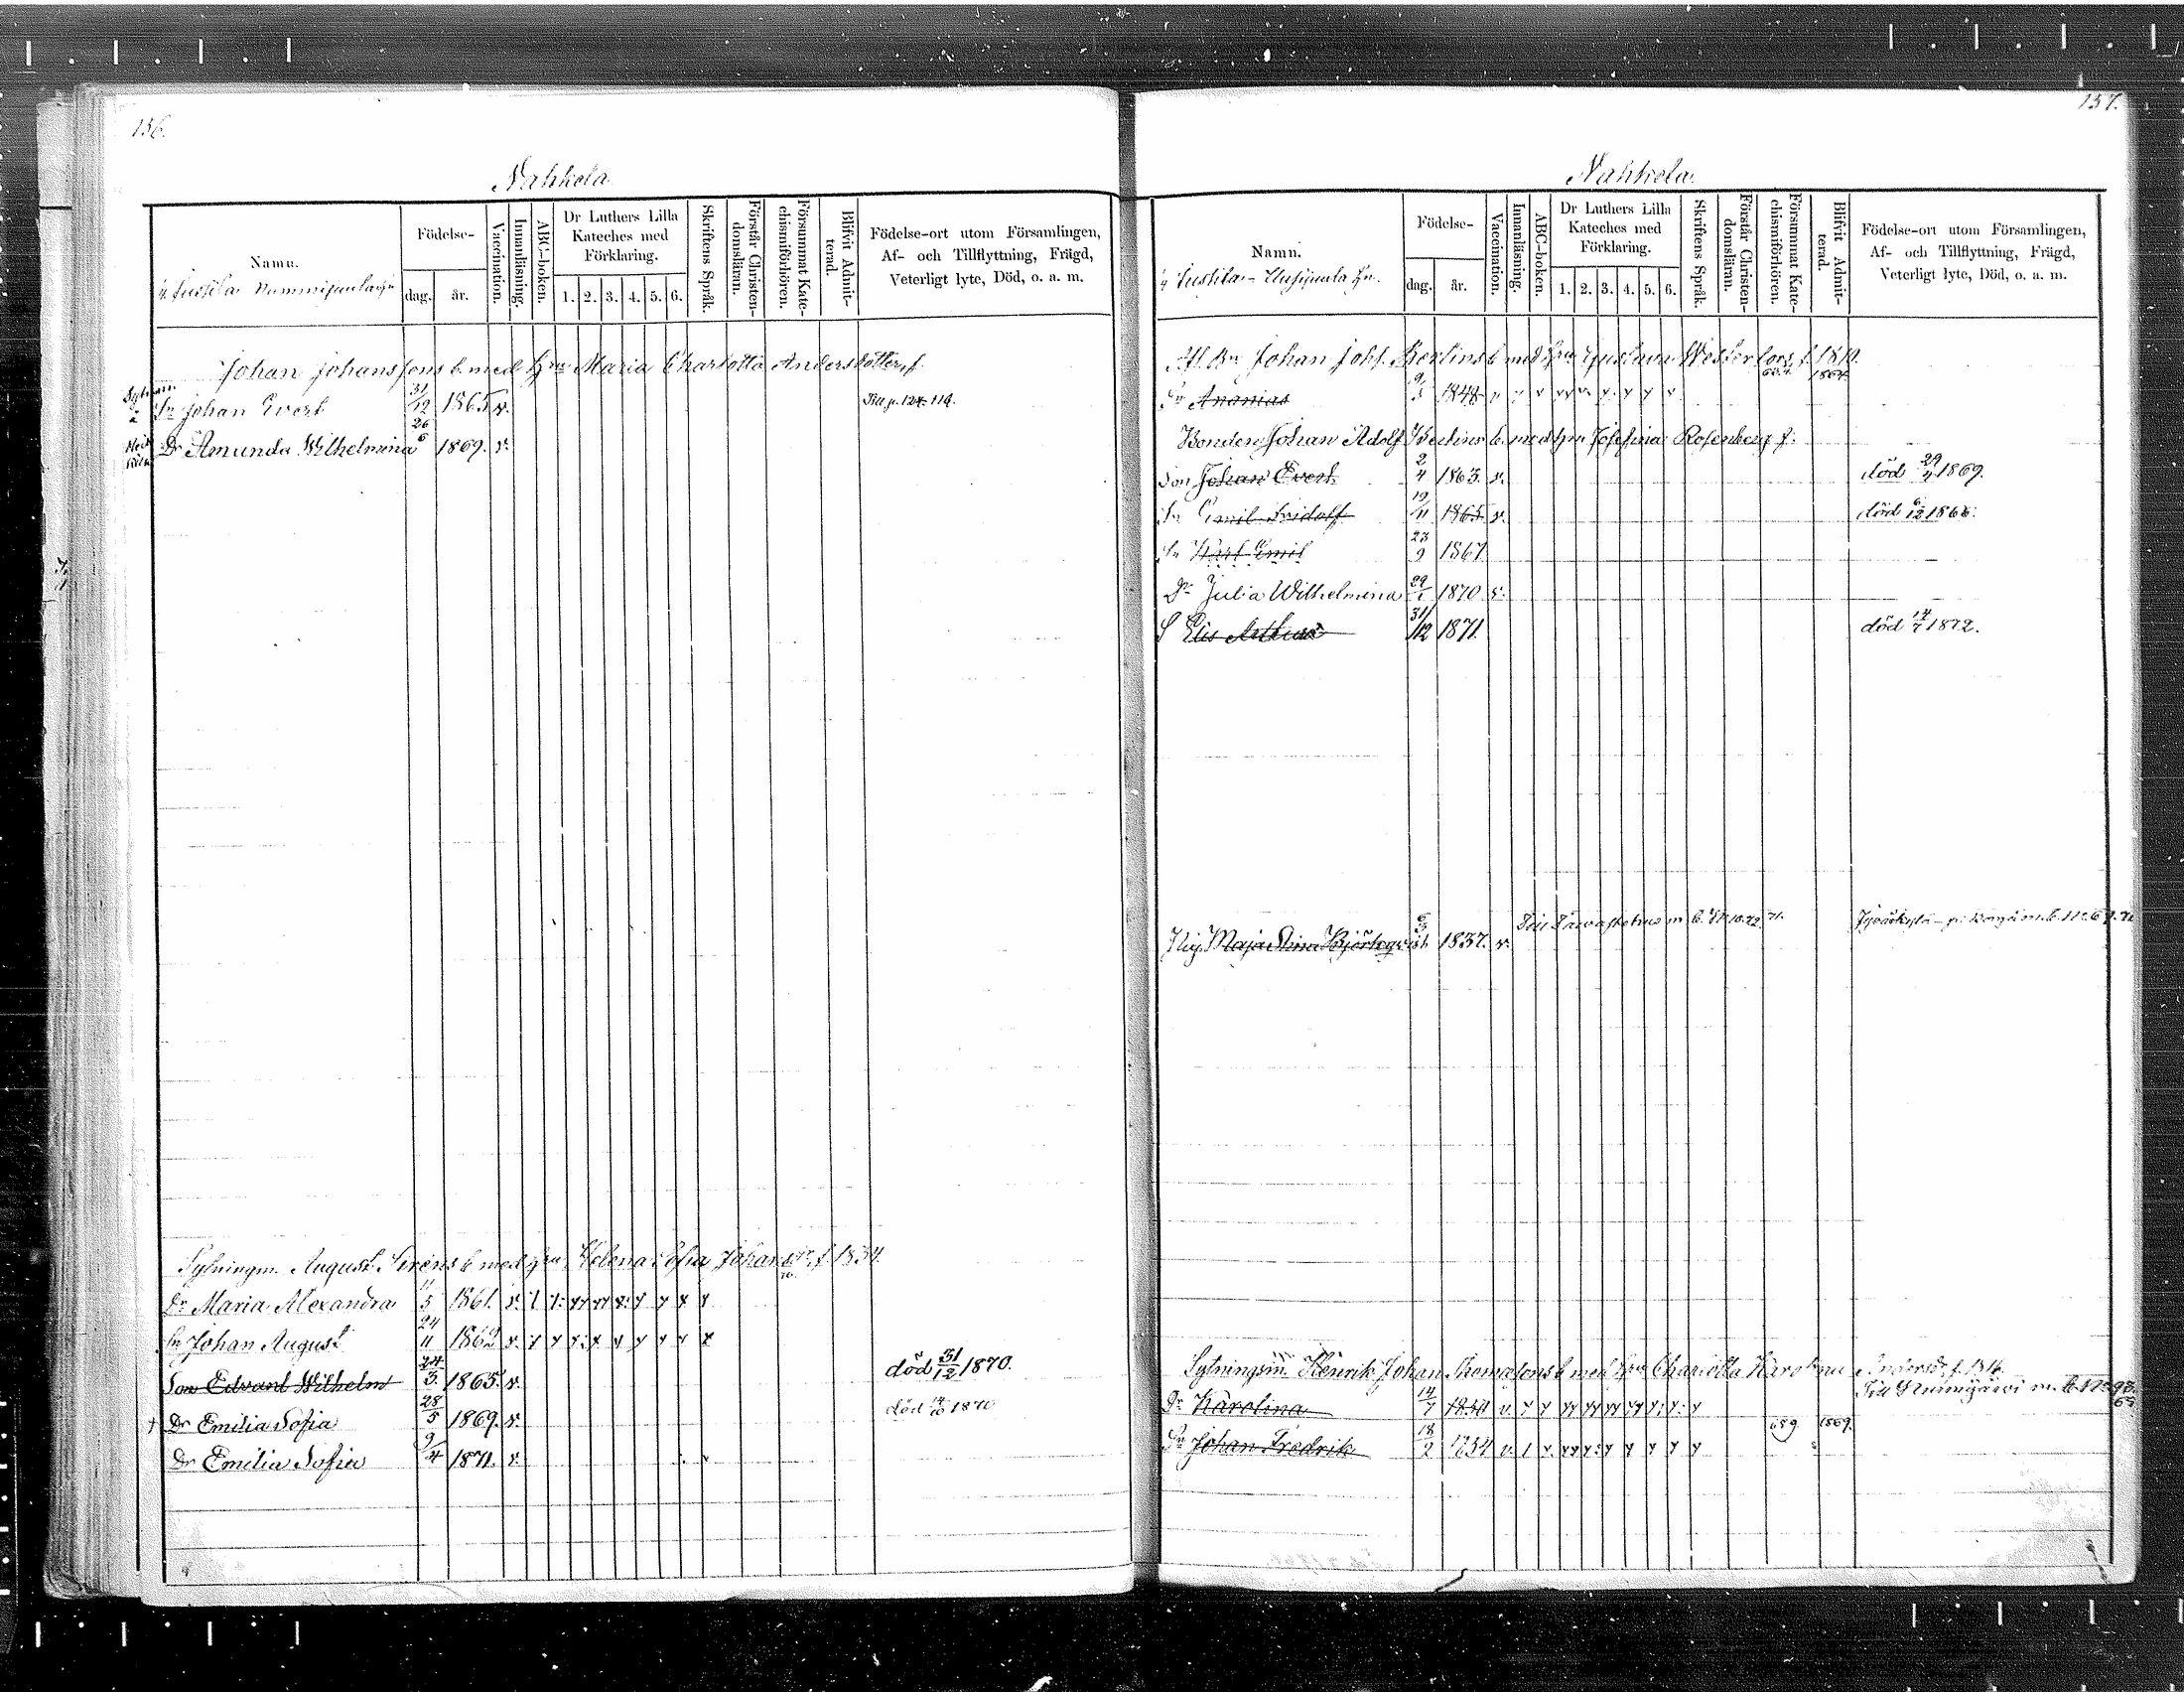 156.
Nahkola
Namn.
Födelse-
dag. år.
Vaccination.
Innanläsning.
ABC-boken.
Dr Luthers Lilla Kateches med Förklaring.
1. 2. 3. 4. 5. 6.
Skriftens Språk.
Förstår Christen-domsläran.
Försummat Kate-chismiförhören.
Blifvit Admit-terad.
Födelse-ort utom Församlingen,
Af- och Tillflyttning, Frägd,
Veterligt lyte, Död, o. a. m.
Johan Johanssons b. med Hru Maria Charlotta Andersdotter, f.
Sn Johan Evert 31/12 1865 v. Till p. 124. 119.
Dr Amunda Wilhelmina 26/5 1869. v.
Sytningm. August Sirens b med Hru Helena Sofia Johansdr. f. 1834.
Dr Maria Alexandra 11/5 1861. v.
Sn Johan August 24/11 1862 v.
Son Edvard Wilhelm 24/3 1865. v. död 31/12 1870.
+ Dr Emilia Sofia 28/5 1869. v. död 14/10 1870
Dr Emilia Sofia 9/4 1871. v.
157.
Nahkola.
Namn.
Födelse-
dag. år.
Vaccination.
Innanläsning.
ABC-boken.
Dr Luthers Lilla Kateches med Förklaring.
1. 2. 3. 4. 5. 6.
Skriftens Språk.
Förstår Christen-domsläran.
Försummat Kate-chismiförhören.
Blifvit Admit-terad.
Födelse-ort utom Församlingen,
Af- och Tillflyttning, Frägd,
Veterligt lyte, Död, o. a. m.
Johan Johs. Berlins b. med Hru Gustava Westerfors, f. 1810.
Sn Ananias 1848 v 1864.
Bonden Johan Adolf Berlins b. med Hru Josefina Rosenberg f.
Son Johan Evert 2/4 1863. v. död 29/4 1869.
Sn Emil Fridolf 19/11 1865 v. död 6/12 1868.
Sn Karl Emil 23/9 1867.
Dr Julia Wilhelmina 29/1 1870 v.
S Elis Arthur 31/12 1871. död 14/7 1872.
Maja Stina Björkqvist 1837. v.
Sytningsm. Henrik Johan Thomassons b med Hru Charlotta Karolina Andersdr. f. 1814.
Dr Karolina 14/7 1850 v
Sn Johan Fredrik 18/2 1854 v 1869.